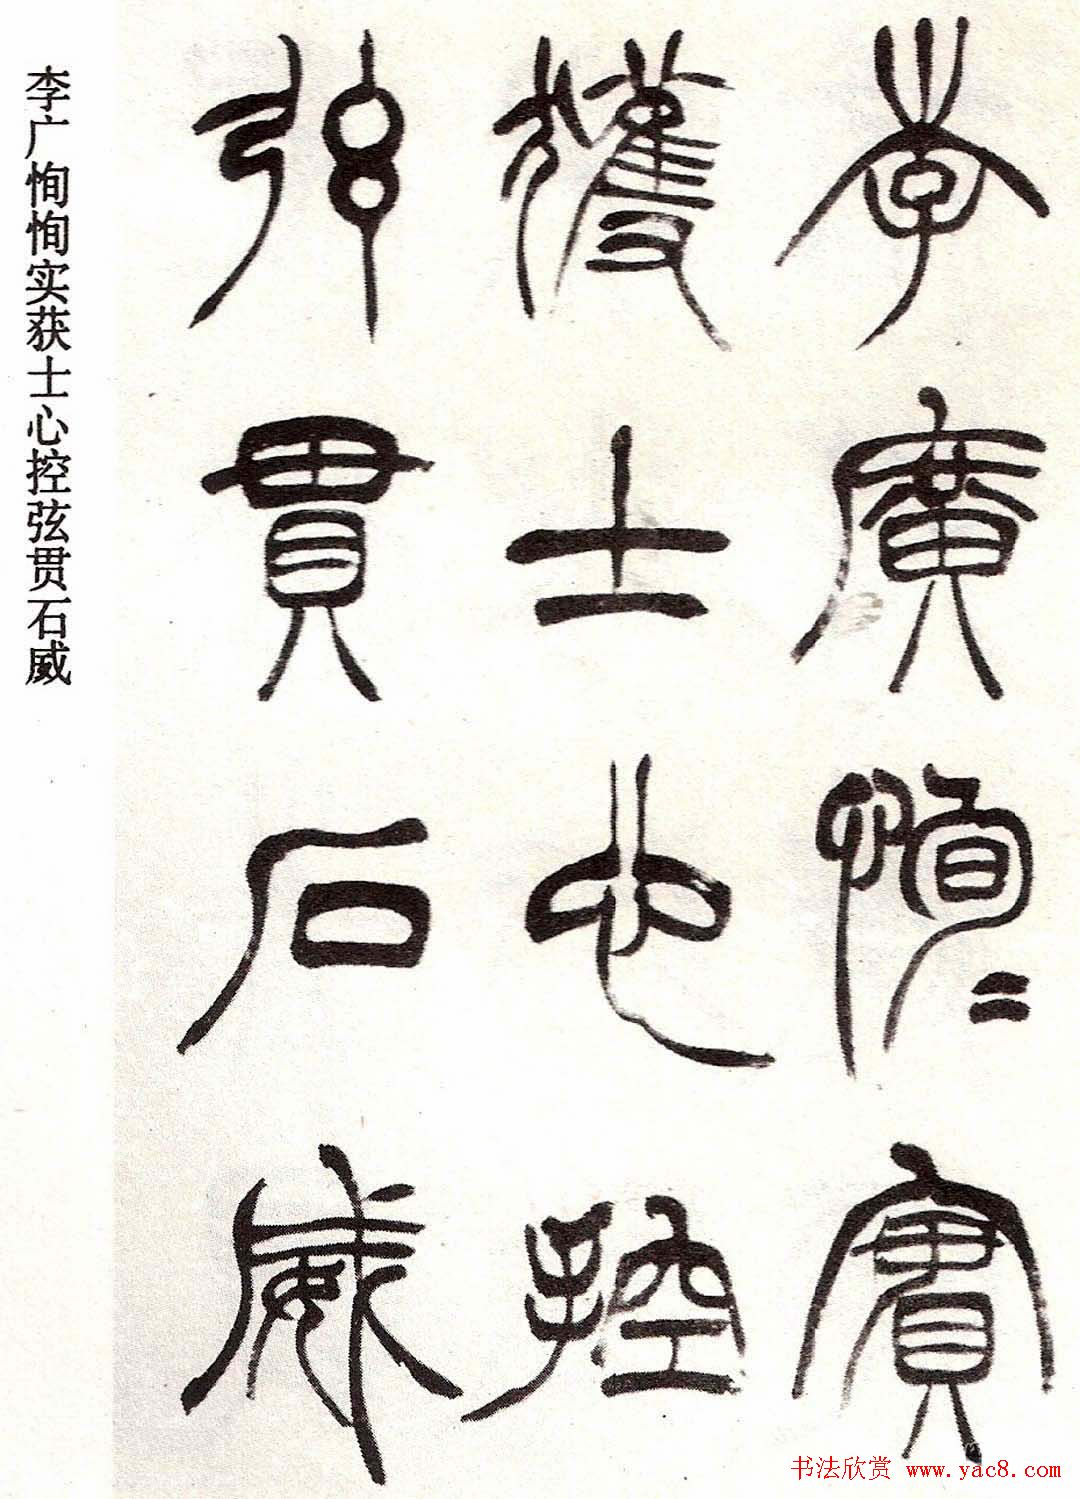 李廣恂二實
獲士心控
弦貫石威
李广恂恂实获士心控弦贯石威
书法欣赏 www.yac8.com